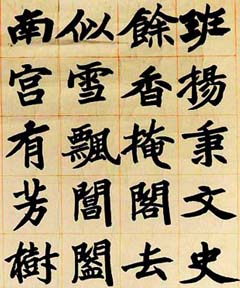 班揚秉文史
餘香掩閣去
似雪飄閶闔
南宮有芳樹